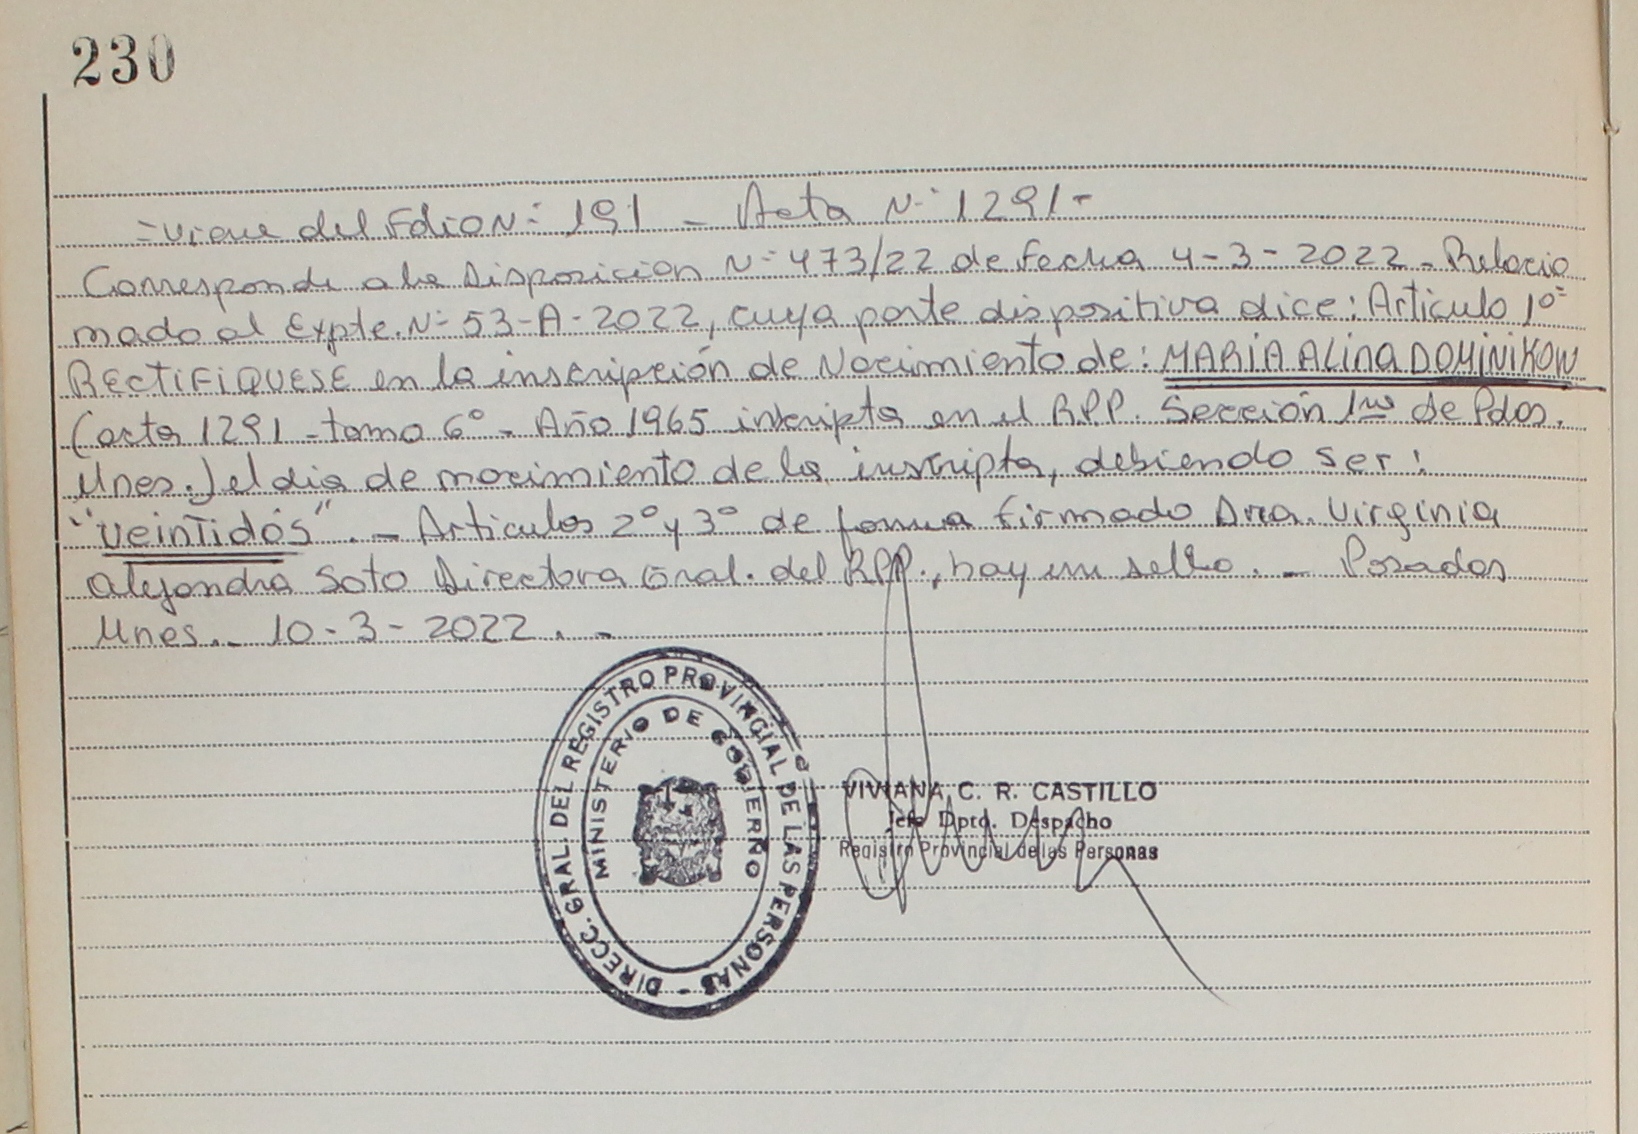 230
=viene del Folio Nº 191 - Acta Nº 1291-
Corresponde a la Disposición Nº 473/22 de fecha 4-3-2022 - Relacio
nado al Expte. Nº 53-A-2022, cuya parte dispositiva dice: Articulo 1º=
RECTIFIQUESE en la inscripción de Nacimiento de: MARIA ALINA DOMINIKOW
(acta 1291 - tomo 6º - Año 1965 inscripta en el R.P.P. Sección 1ra de Pdas.
Mnes.) el dia de nacimiento de la inscripta, debiendo ser:
"veintidós". - Articulos 2º y 3º de forma firmado Dra. Virginia
Alejandra Soto Directora Gral. del RPP., hay un sello. - Posadas
Mnes. - 10-3-2022. -
DIRECC. GRAL. DEL REGISTRO PROVINCIAL DE LAS PERSONAS -
MINISTERIO DE GOBIERNO
VIVIANA C. R. CASTILLO
Jefe Dpto. Despacho
Registro Provincial de las Personas